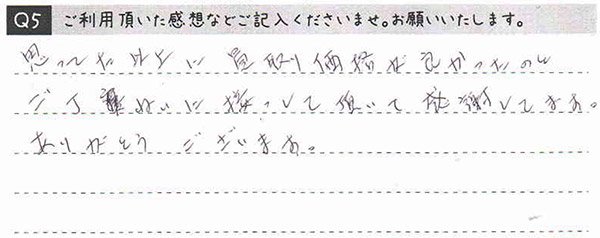 Q5 ご利用頂いた感想などご記入くださいませ。お願いいたします。
思った以上に買取り価格が良かったのと
ご丁ねいに接っして頂いて感謝してます。
ありがとうございます。